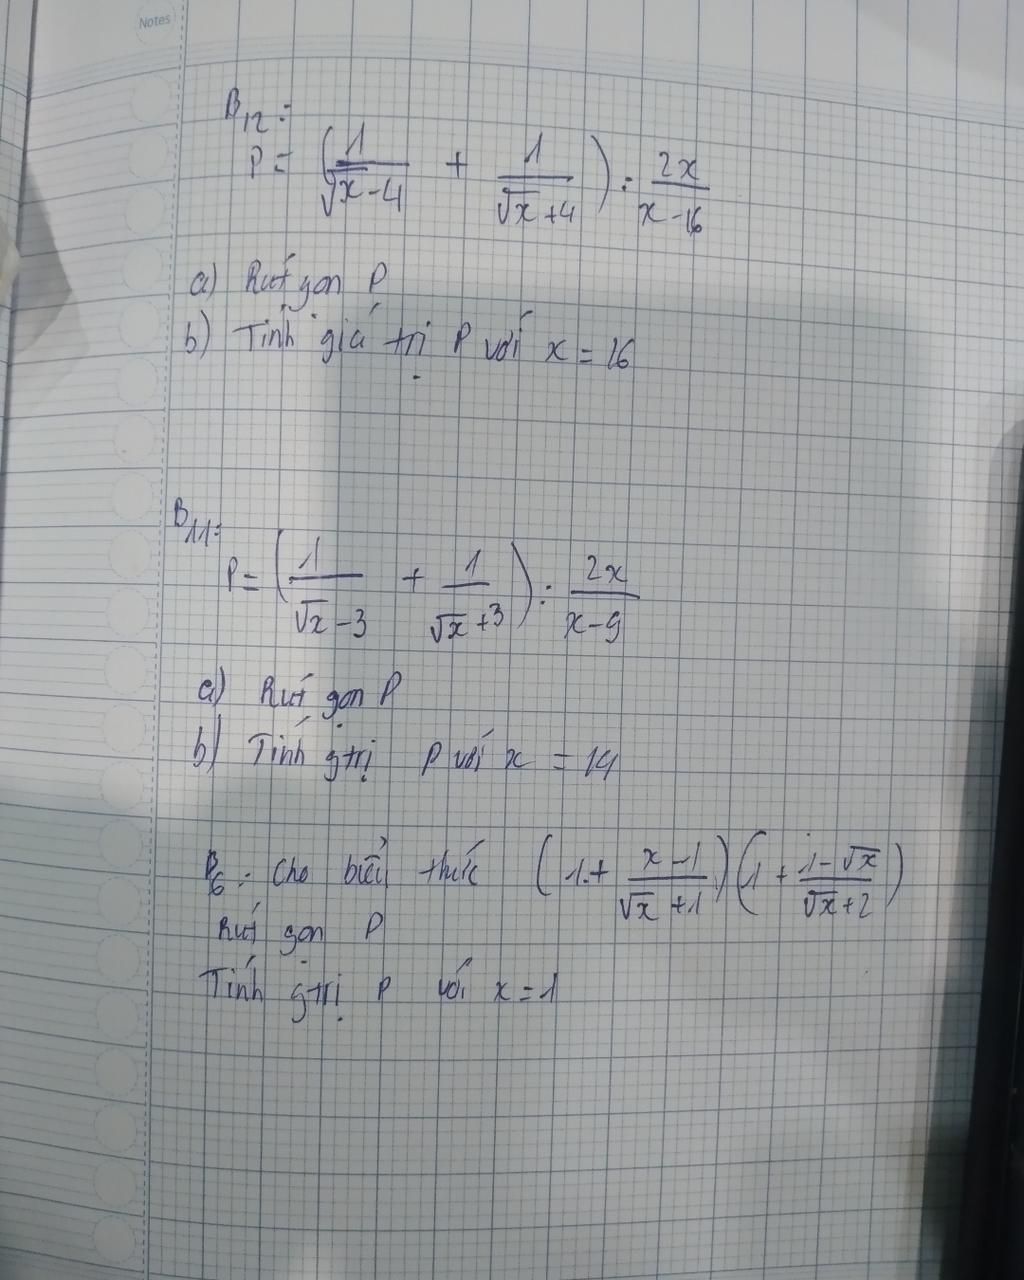 Notes
B12:
P = (1/(√x - 4) + 1/(√x + 4)) : 2x/(x - 16)
a) Rút gọn P
b) Tính giá trị P với x = 16
B11:
P = (1/(√x - 3) + 1/(√x + 3)) : 2x/(x - 9)
a) Rút gọn P
b) Tính gtrị P với x = 14
B6: Cho biểu thức (1 + (x - 1)/(√x + 1))(1 + (1 - √x)/(√x + 2))
Rút gọn P
Tính gtrị P với x = 1